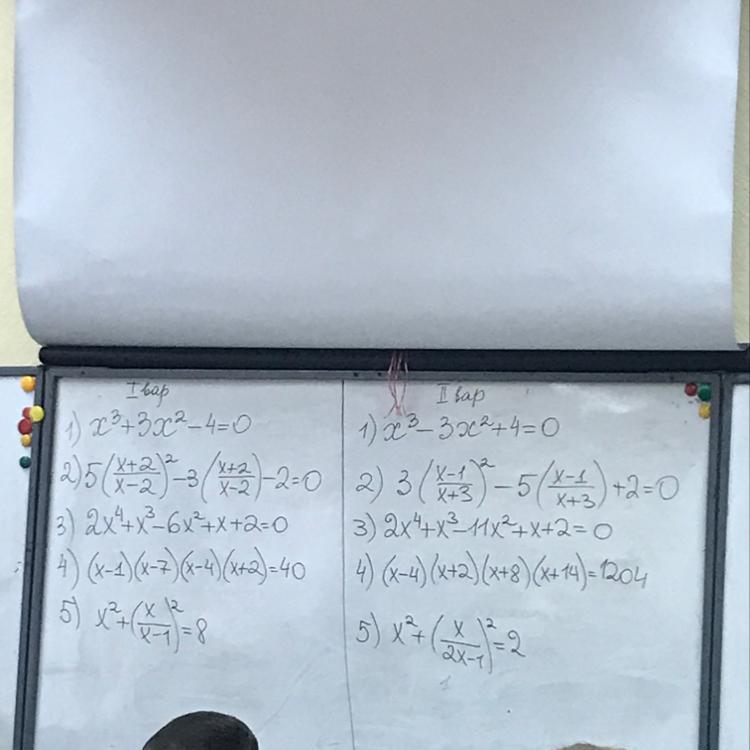 I вар
1) x³+3x²-4=0
2) 5((x+2)/(x-2))²-3((x+2)/(x-2))-2=0
3) 2x⁴+x³-6x²+x+2=0
4) (x-1)(x-7)(x-4)(x+2)=40
5) x²+(x/(x-1))²=8
II вар
1) x³-3x²+4=0
2) 3((x-1)/(x+3))²-5((x-1)/(x+3))+2=0
3) 2x⁴+x³-11x²+x+2=0
4) (x-4)(x+2)(x+8)(x+14)=1204
5) x²+(x/(2x-1))²=2